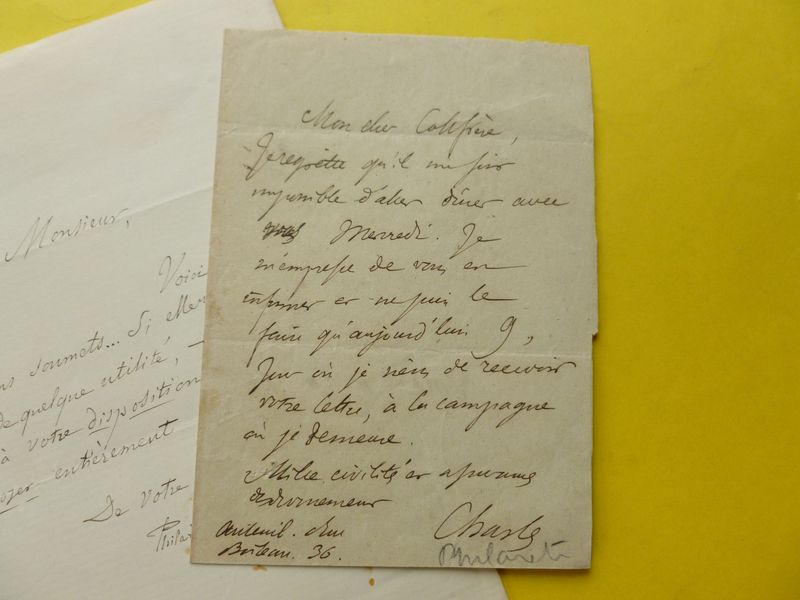 Monsieur,
Voici
soumets... Si Mer
de quelque utilité,
à votre disposition
entièrement
De votre
Mon cher Confrère,
Je regrette qu'il me soit
impossible d'aller dîner avec
vous Mercredi. Je
m'empresse de vous en
informer et ne puis le
faire qu'aujourd'hui 9,
Jour où je viens de recevoir
votre lettre, à la campagne
où je demeure.
Mille civilités et assurances
de dévouement
Auteuil. rue
Boileau. 36.
Chasles
Philarète